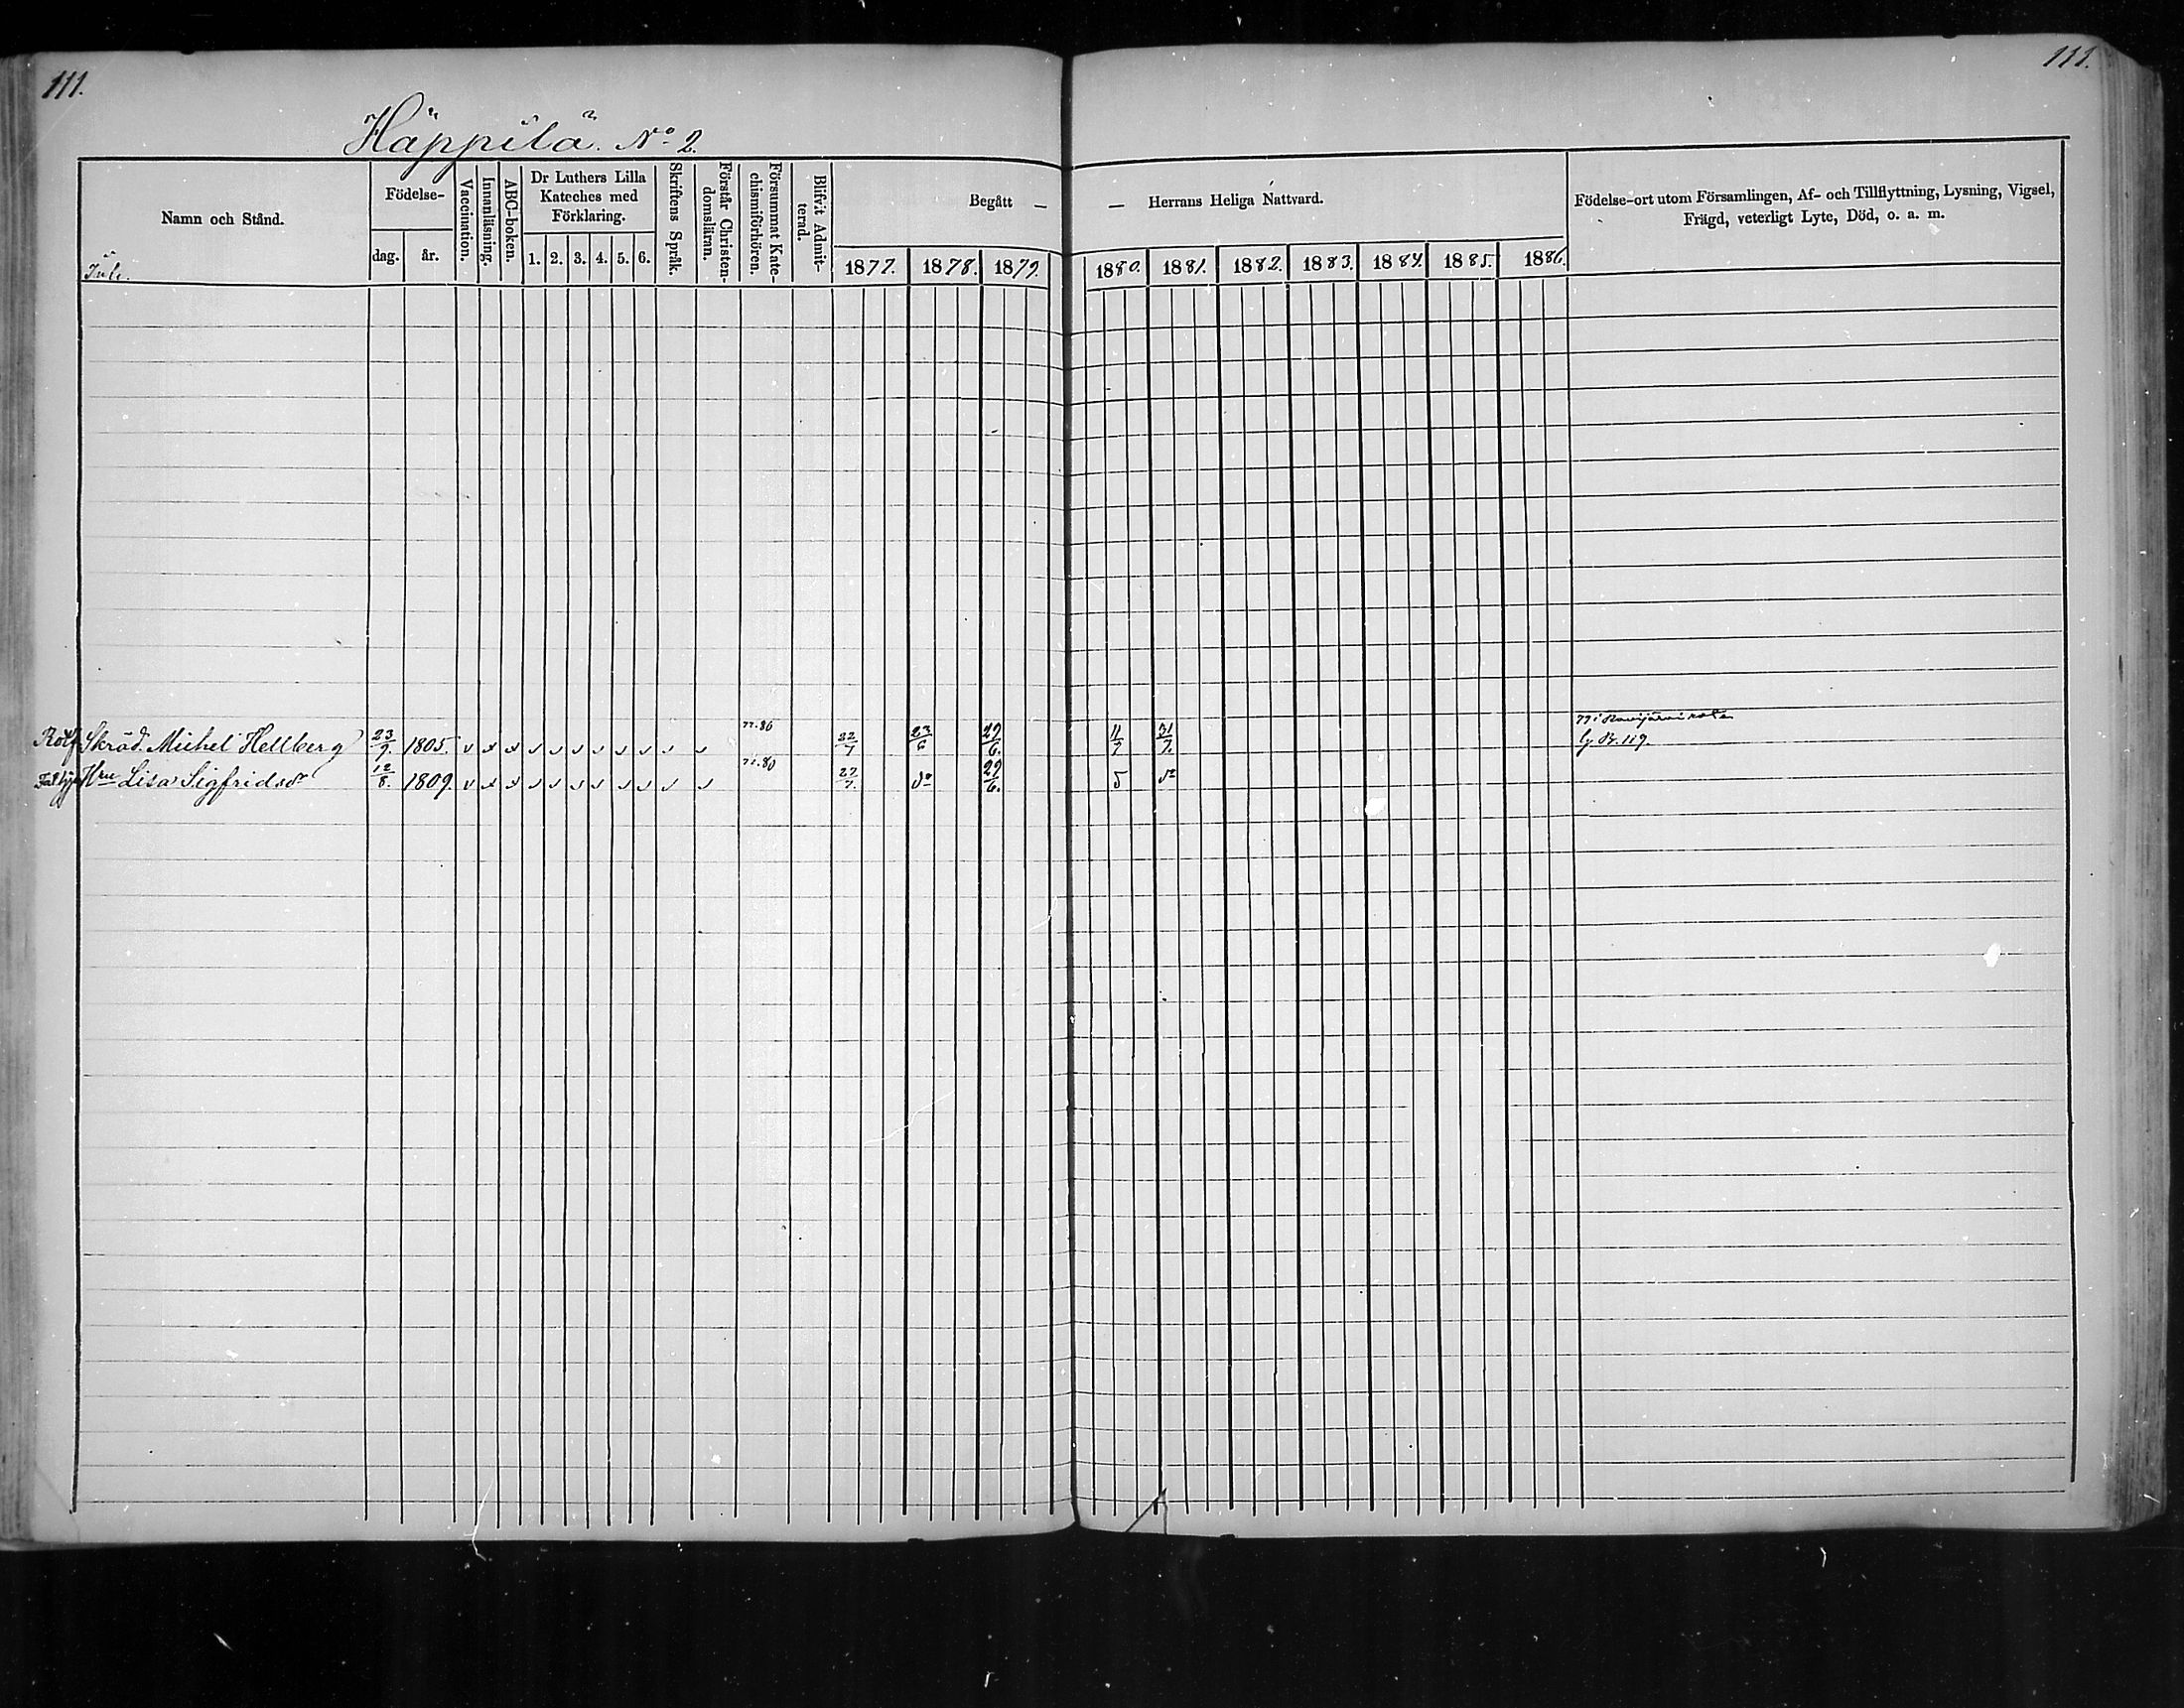 111. 111.
Häppilä. No 2.
Namn och Stånd.
Födelse-
dag. år.
Vaccination.
Innanläsning.
ABC-boken.
Dr Luthers Lilla
Kateches med
Förklaring.
1. 2. 3. 4. 5. 6.
Skriftens Språk.
Förstår Christen-
domsläran.
Försummat Kate-
chismiförhören.
Blifvit Admit-
terad.
Begått — — Herrans Heliga Nattvard.
1877. 1878. 1879. 1880. 1881. 1882. 1883. 1884. 1885. 1886.
Födelse-ort utom Församlingen, Af- och Tillflyttning, Lysning, Vigsel,
Frägd, veterligt Lyte, Död, o. a. m.
Skräd. Michel Hellberg 23/9. 1805. 80 22/7 23/6 29/6. 11/7 31/7.
Hru Lisa Sigfridsdr 12/8. 1809. 80 22/7. do 29/6. 5 do
119.